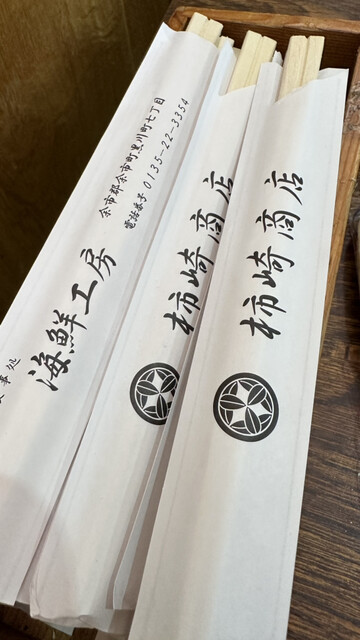 余市郡余市町黒川町七丁目
電話番号 0135-22-3354
海鮮工房
食事処
柿崎商店
柿崎商店